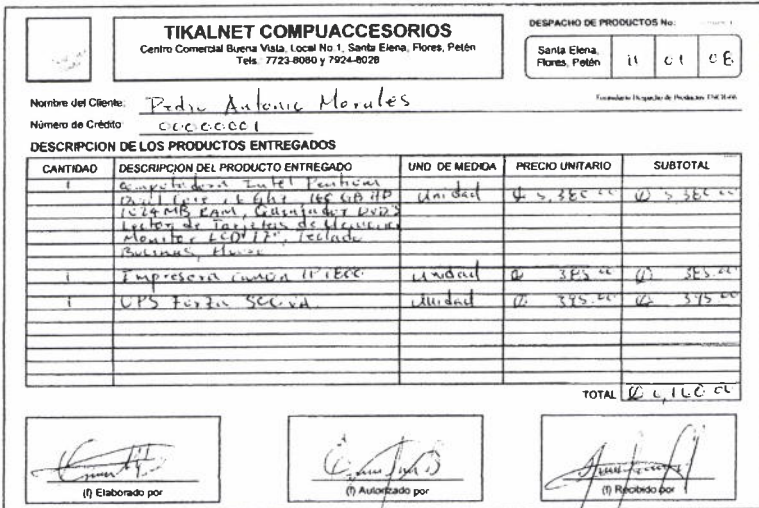 TIKALNET COMPUACCESORIOS
Centro Comercial Buena Vista, Local No 1, Santa Elena, Flores, Petén
Tels.: 7723-8080 y 7924-8028
DESPACHO DE PRODUCTOS No.:
Santa Elena, Flores, Petén 11 01 08
Nombre del Cliente: Pedro Antonio Morales
Número de Crédito: 00000001
DESCRIPCION DE LOS PRODUCTOS ENTREGADOS
CANTIDAD DESCRIPCION DEL PRODUCTO ENTREGADO UND DE MEDIDA PRECIO UNITARIO SUBTOTAL
1 Computadora Intel Pentium Unidad
Dual Core GHz 160 GB HD
1024 MB RAM, Quemador DVD'S
Lector de Tarjetas de Memoria
Monitor LCD 17", Teclado
Bocinas, Mouse
1 Impresora Canon Unidad Q 385.00 Q 385.00
1 UPS Forza 500 VA Unidad Q 395.00 Q 395.00
TOTAL
(f) Elaborado por
(f) Autorizado por
(f) Recibido por